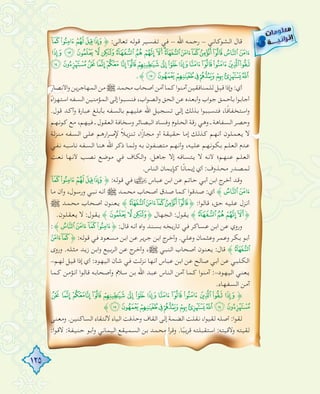 معلومات إثرائية
قال الشوكاني – رحمه الله – في تفسير قوله تعالى: ﴿ وَإِذَا قِيلَ لَهُمْ ءَامِنُوا كَمَآ
ءَامَنَ النَّاسُ قَالُوٓا أَنُؤْمِنُ كَمَآ ءَامَنَ السُّفَهَآءُ أَلَآ إِنَّهُمْ هُمُ السُّفَهَآءُ وَلَٰكِن لَّا يَعْلَمُونَ ﴿١٣﴾ وَإِذَا
لَقُوا الَّذِينَ ءَامَنُوا قَالُوٓا ءَامَنَّا وَإِذَا خَلَوْا إِلَىٰ شَيَٰطِينِهِمْ قَالُوٓا إِنَّا مَعَكُمْ إِنَّمَا نَحْنُ مُسْتَهْزِءُونَ ﴿١٤﴾
اللَّهُ يَسْتَهْزِئُ بِهِمْ وَيَمُدُّهُمْ فِي طُغْيَٰنِهِمْ يَعْمَهُونَ ﴿١٥﴾ ﴾.
أي: وإذا قيل للمنافقين آمنوا كما آمن أصحاب محمد ﷺ من المهاجرين والأنصار
أجابوا بأحمق جواب وأبعده عن الحق والصواب، فنسبوا إلى المؤمنين السفه استهزاءً
واستخفافًا، فتسببوا بذلك إلى تسجيل الله عليهم بالسفه بأبلغ عبارة وآكد قول.
وحصر السفاهة، وهي رقة الحلوم وفساد البصائر وسخافة العقول، فيهم، مع كونهم
لا يعلمون أنهم كذلك إما حقيقة أو مجازًا، تنزيلًا لإصرارهم على السفه منزلة
عدم العلم بكونهم عليه، وأنهم متصفون به ولما ذكر الله هنا السفه ناسبه نفي
العلم عنهم؛ لأنه لا يتسافه إلا جاهل. والكاف في موضع نصب لأنها نعت
لمصدر محذوف: أي إيمانًا كإيمان الناس.
وقد أخرج ابن أبي حاتم عن ابن عباس في قوله: ﴿ وَإِذَا قِيلَ لَهُمْ ءَامِنُوا كَمَآ
ءَامَنَ النَّاسُ ﴾ أي: صدقوا كما صدق أصحاب محمد ﷺ أنه نبي ورسول، وأن ما
أنزل عليه حق، قالوا: ﴿ قَالُوٓا أَنُؤْمِنُ كَمَآ ءَامَنَ السُّفَهَآءُ ﴾ يعنون أصحاب محمد ﷺ
﴿ أَلَآ إِنَّهُمْ هُمُ السُّفَهَآءُ ﴾ يقول: الجهال ﴿ وَلَٰكِن لَّا يَعْلَمُونَ ﴾ يقول: لا يعقلون.
وروي عن ابن عساكر في تاريخه بسند واه أنه قال: ﴿ ءَامِنُوا كَمَآ ءَامَنَ النَّاسُ ﴾:
أبو بكر وعمر وعثمان وعلي. وأخرج ابن جرير عن ابن مسعود في قوله: ﴿ كَمَآ ءَامَنَ
السُّفَهَآءُ ﴾ قال: يعنون أصحاب النبي ﷺ. وأخرج عن الربيع وابن زيد مثله. وروى
الكلبي عن أبي صالح عن ابن عباس أنها نزلت في شأن اليهود: أي إذا قيل لهم-
يعني اليهود-: آمنوا كما آمن الناس عبد الله بن سلام وأصحابه قالوا أنؤمن كما
آمن السفهاء.
﴿ وَإِذَا لَقُوا الَّذِينَ ءَامَنُوا قَالُوٓا ءَامَنَّا وَإِذَا خَلَوْا إِلَىٰ شَيَٰطِينِهِمْ قَالُوٓا إِنَّا مَعَكُمْ إِنَّمَا نَحْنُ
مُسْتَهْزِءُونَ ﴿١٤﴾ اللَّهُ يَسْتَهْزِئُ بِهِمْ وَيَمُدُّهُمْ فِي طُغْيَٰنِهِمْ يَعْمَهُونَ ﴿١٥﴾ ﴾
لقوا: أصله لقيوا، نقلت الضمة إلى القاف وحذفت الياء لالتقاء الساكنين. ومعنى
لقيته ولاقيته: استقبلته قريبًا. وقرأ محمد بن السميفع اليماني وأبو حنيفة: لاقوا؛
١٢٥